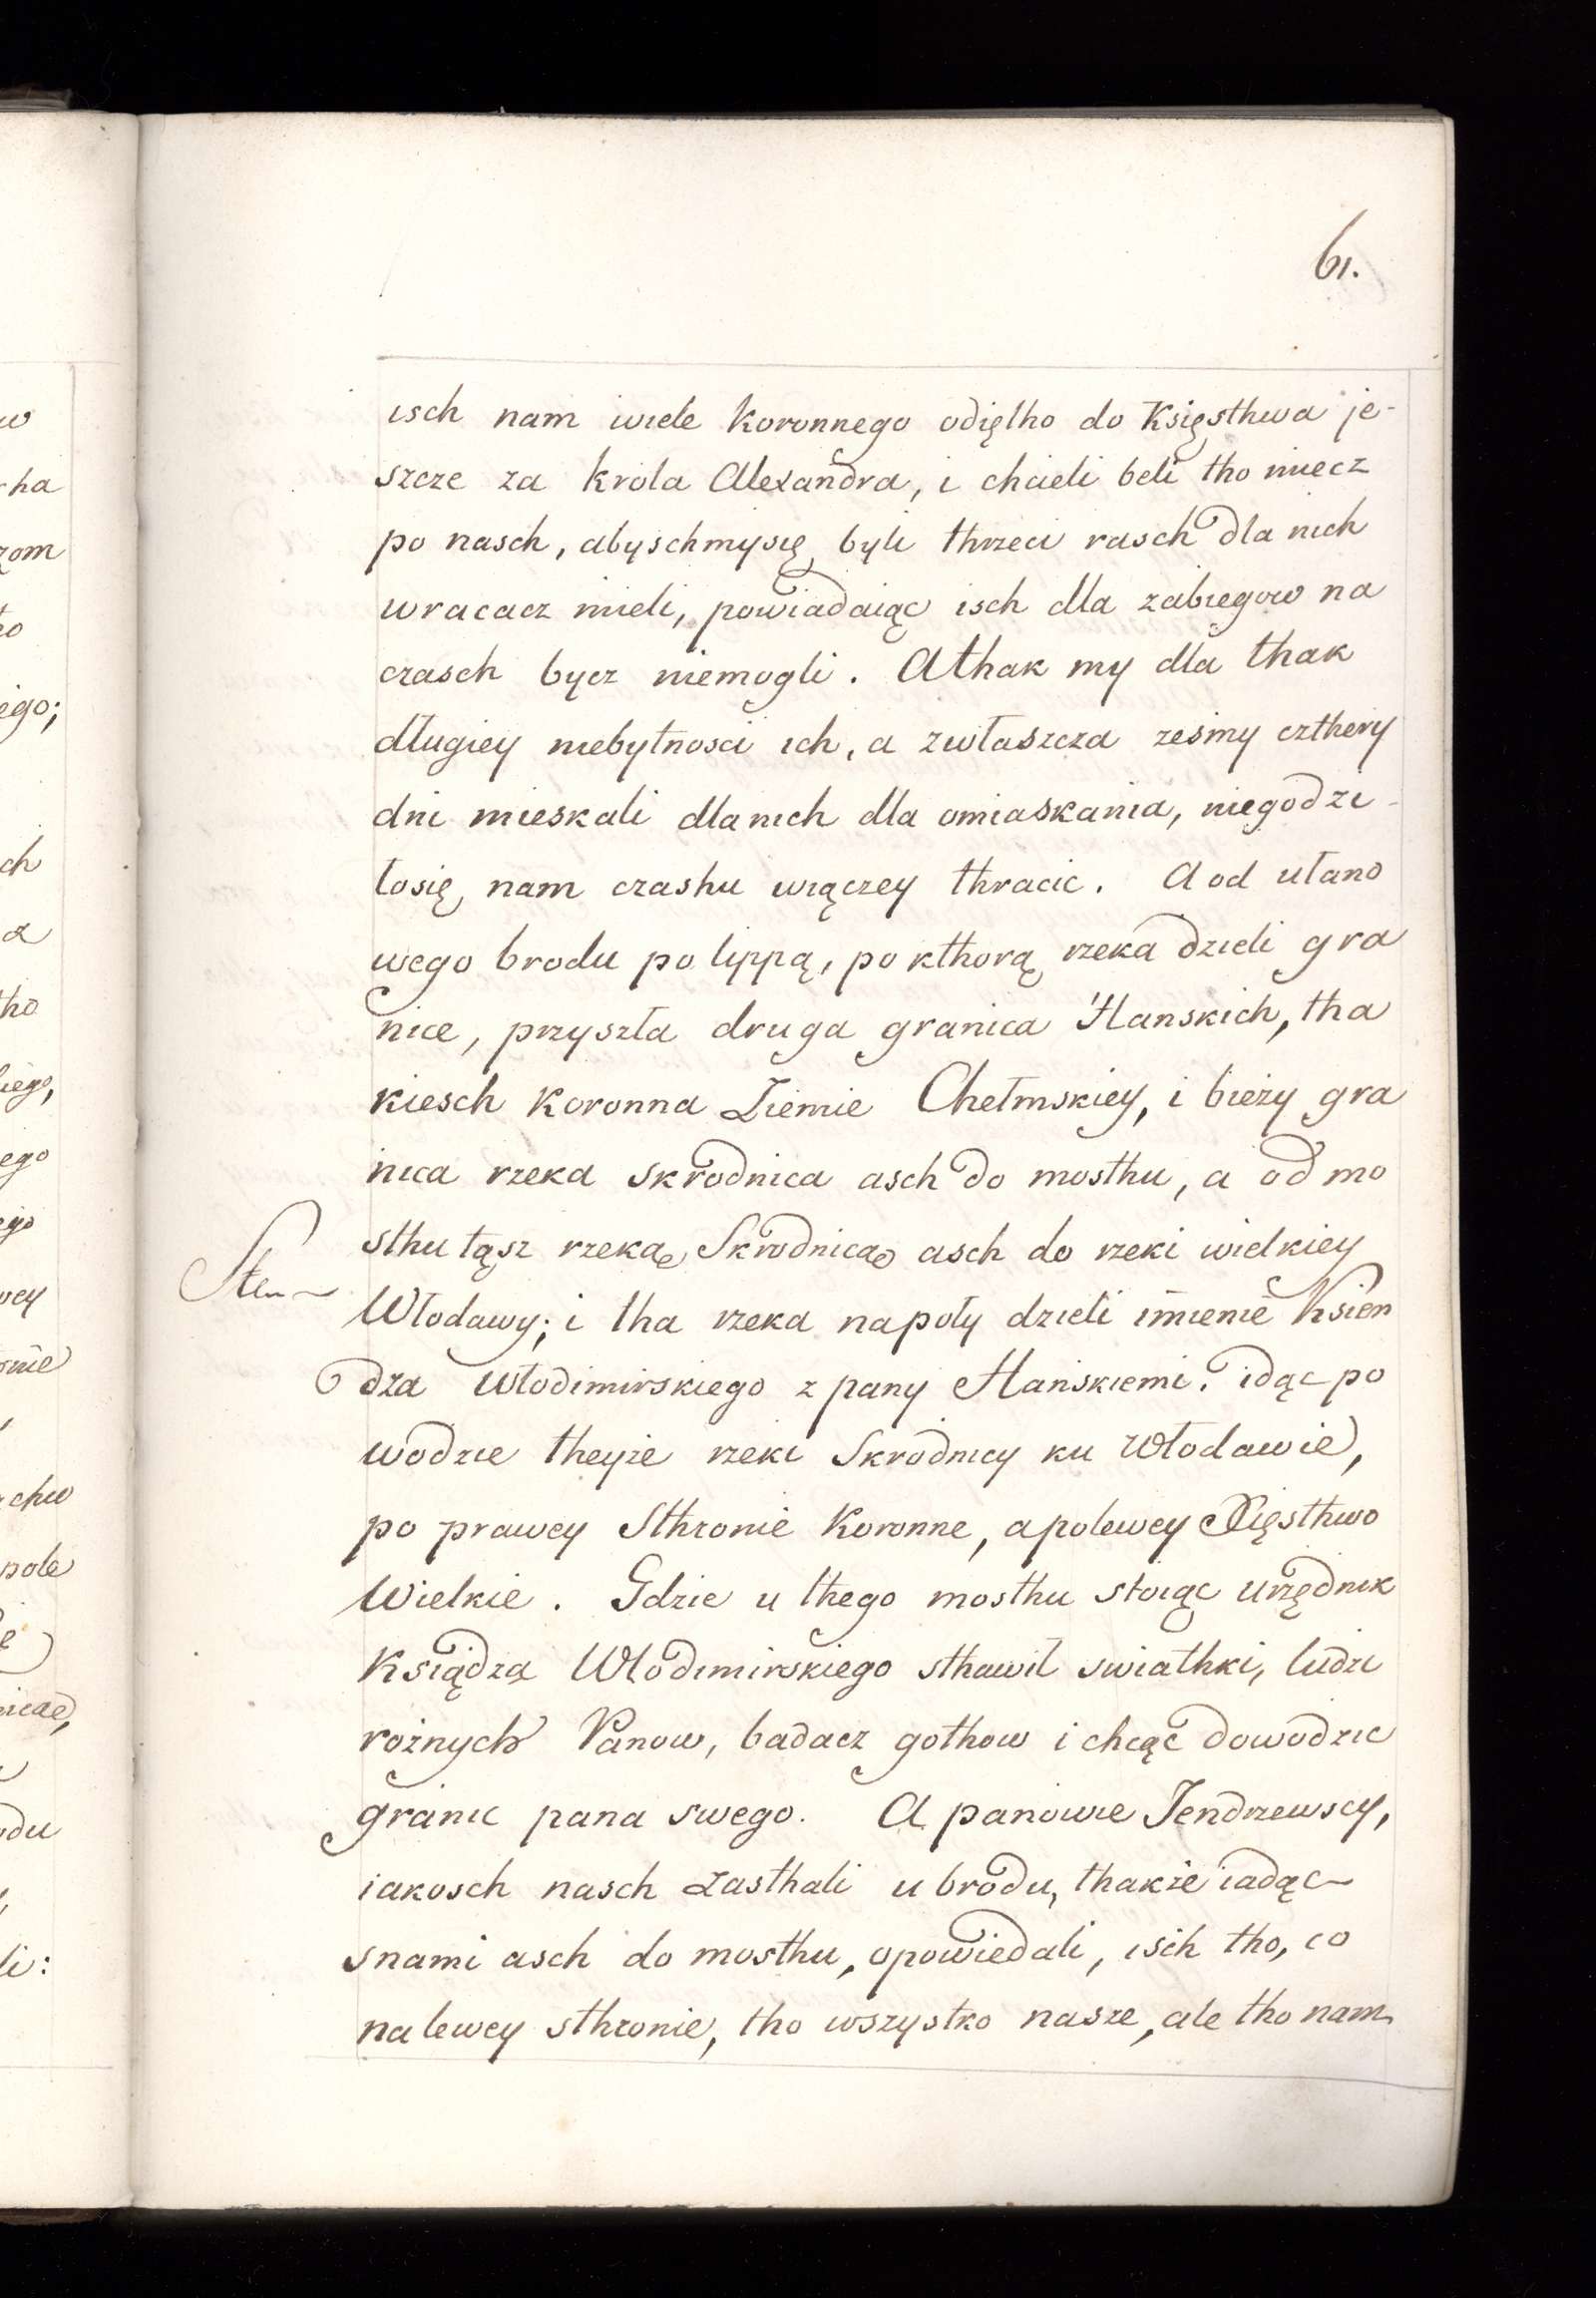 61.
isch nam wiele Koronnego odiętho do Księsthwa je-
szcze za krola Alexandra, i chcieli beli tho miecz
po nasch, abyschmysię byli thrzeci rasch dla nich
wracacz mieli, powiadaiąc isch dla zabiegow na
czasch bycz niemogli. Athak my dla thak
długiey niebytnosci ich, a zwłaszcza zesmy czthery
dni mieskali dla nich dla omiaskania, niegodzi-
łosię nam czashu wiączey thracic. A od ułano
wego brodu po lippą, po kthorą rzeka dzieli gra
nice, przyszła druga granica Hanskich, tha
kiesch Koronna Ziemie Chełmskiey, i bieży gra
nica rzeka skrodnica asch do mosthu, a od mo
sthu tąsz rzeką Skrodnicą asch do rzeki wielkiey
Włodawy; i tha rzeka napoły dzieli imienie Ksien
dza Włodimirskiego z pany Hańskiemi. idąc po
wodzie theyże rzeki Skrodnicy ku Włodawie,
po prawey Sthronie Koronne, a polewey Xięsthwo
Wielkie. Gdzie u thego mosthu stoiąc urzędnik
Książdza Włodimirskiego sthawił swiathki, ludzi
rożnych Panow, badacz gothow i chcąc dowodzic
granic pana swego. A panowie Jendrzewscy,
iakosch nasch zasthali u brodu, thakże iadąc
snami asch do mosthu, opowiedali, isch tho, co
na lewey sthronie, tho wszystko nasze, ale tho nam